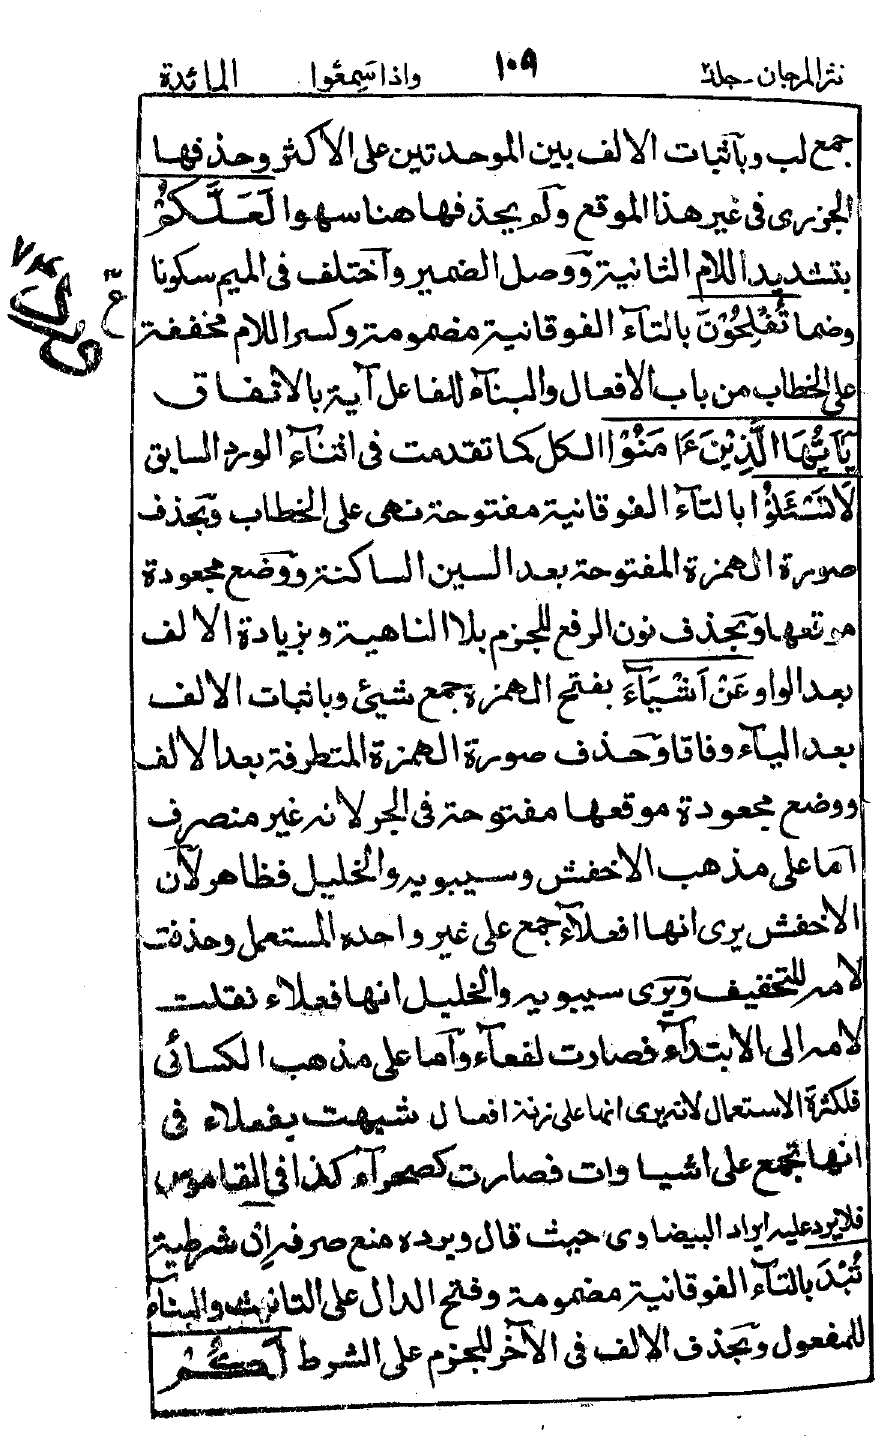 نثر المرجان - جلد٢ ١٥٩ واذا سمعوا المائدة
جمع لب وبآثبات الالف بين الموحدتين على الاكثر وحذفها
الجزرى فى غير هذا الموقع ولم يحذفها هنا سهوا لَعَلَّكُمْ
بتشديد اللام الثانية ووصل الضمير وآختلف فى الميم سكونا
وضما تُفْلِحُوْنَ بالتآء الفوقانية مضمومة وكسر اللام مخففة
على الخطاب من باب الافعال والبنآء للفاعل آية بالاتفاق
يٰٓاَيُّهَا الَّذِيْنَ ءَامَنُوْا الكل كما تقدمت فى اثنآء الورد السابق
لَا تَسْئَلُوْا بالتآء الفوقانية مفتوحة نهى على الخطاب وبحذف
صورة الهمزة المفتوحة بعد السين الساكنة ووضع مجعودة
موقعها وبحذف نون الرفع للجزم بلا الناهية وبزيادة الالف
بعد الواو عَنْ اَشْيَآءَ بفتح الهمزة جمع شيئ وباثبات الالف
بعد اليآء وفاقا وحذف صورة الهمزة المتطرفة بعد الالف
ووضع مجعودة موقعها مفتوحة فى الجر لانه غير منصرف
آما على مذهب الاخفش وسيبويه والخليل فظاهر لآن
الاخفش يرى انها افعلآء جمع على غير واحده المستعمل وحذفت
لامه للتخفيف ويرى سيبويه والخليل انها فعلاء نقلت
لامه الى الابتدآء فصارت لفعآء وآما على مذهب الكسائى
فلكثرة الاستعمال لانه يرى انها على زنة افعال شبهت بفعلاء فى
انها تجمع على اشياوات فصارت كصحرآء كذا فى القاموس
فلا يرد عليه ايراد البيضاوى حيث قال ويرده منع صرفه اِنْ شرطية
تُبْدَ بالتآء الفوقانية مضمومة وفتح الدال على التانيث والبنآء
للمفعول وبحذف الالف فى الآخر للجزم على الشرط لَكُمْ
ع